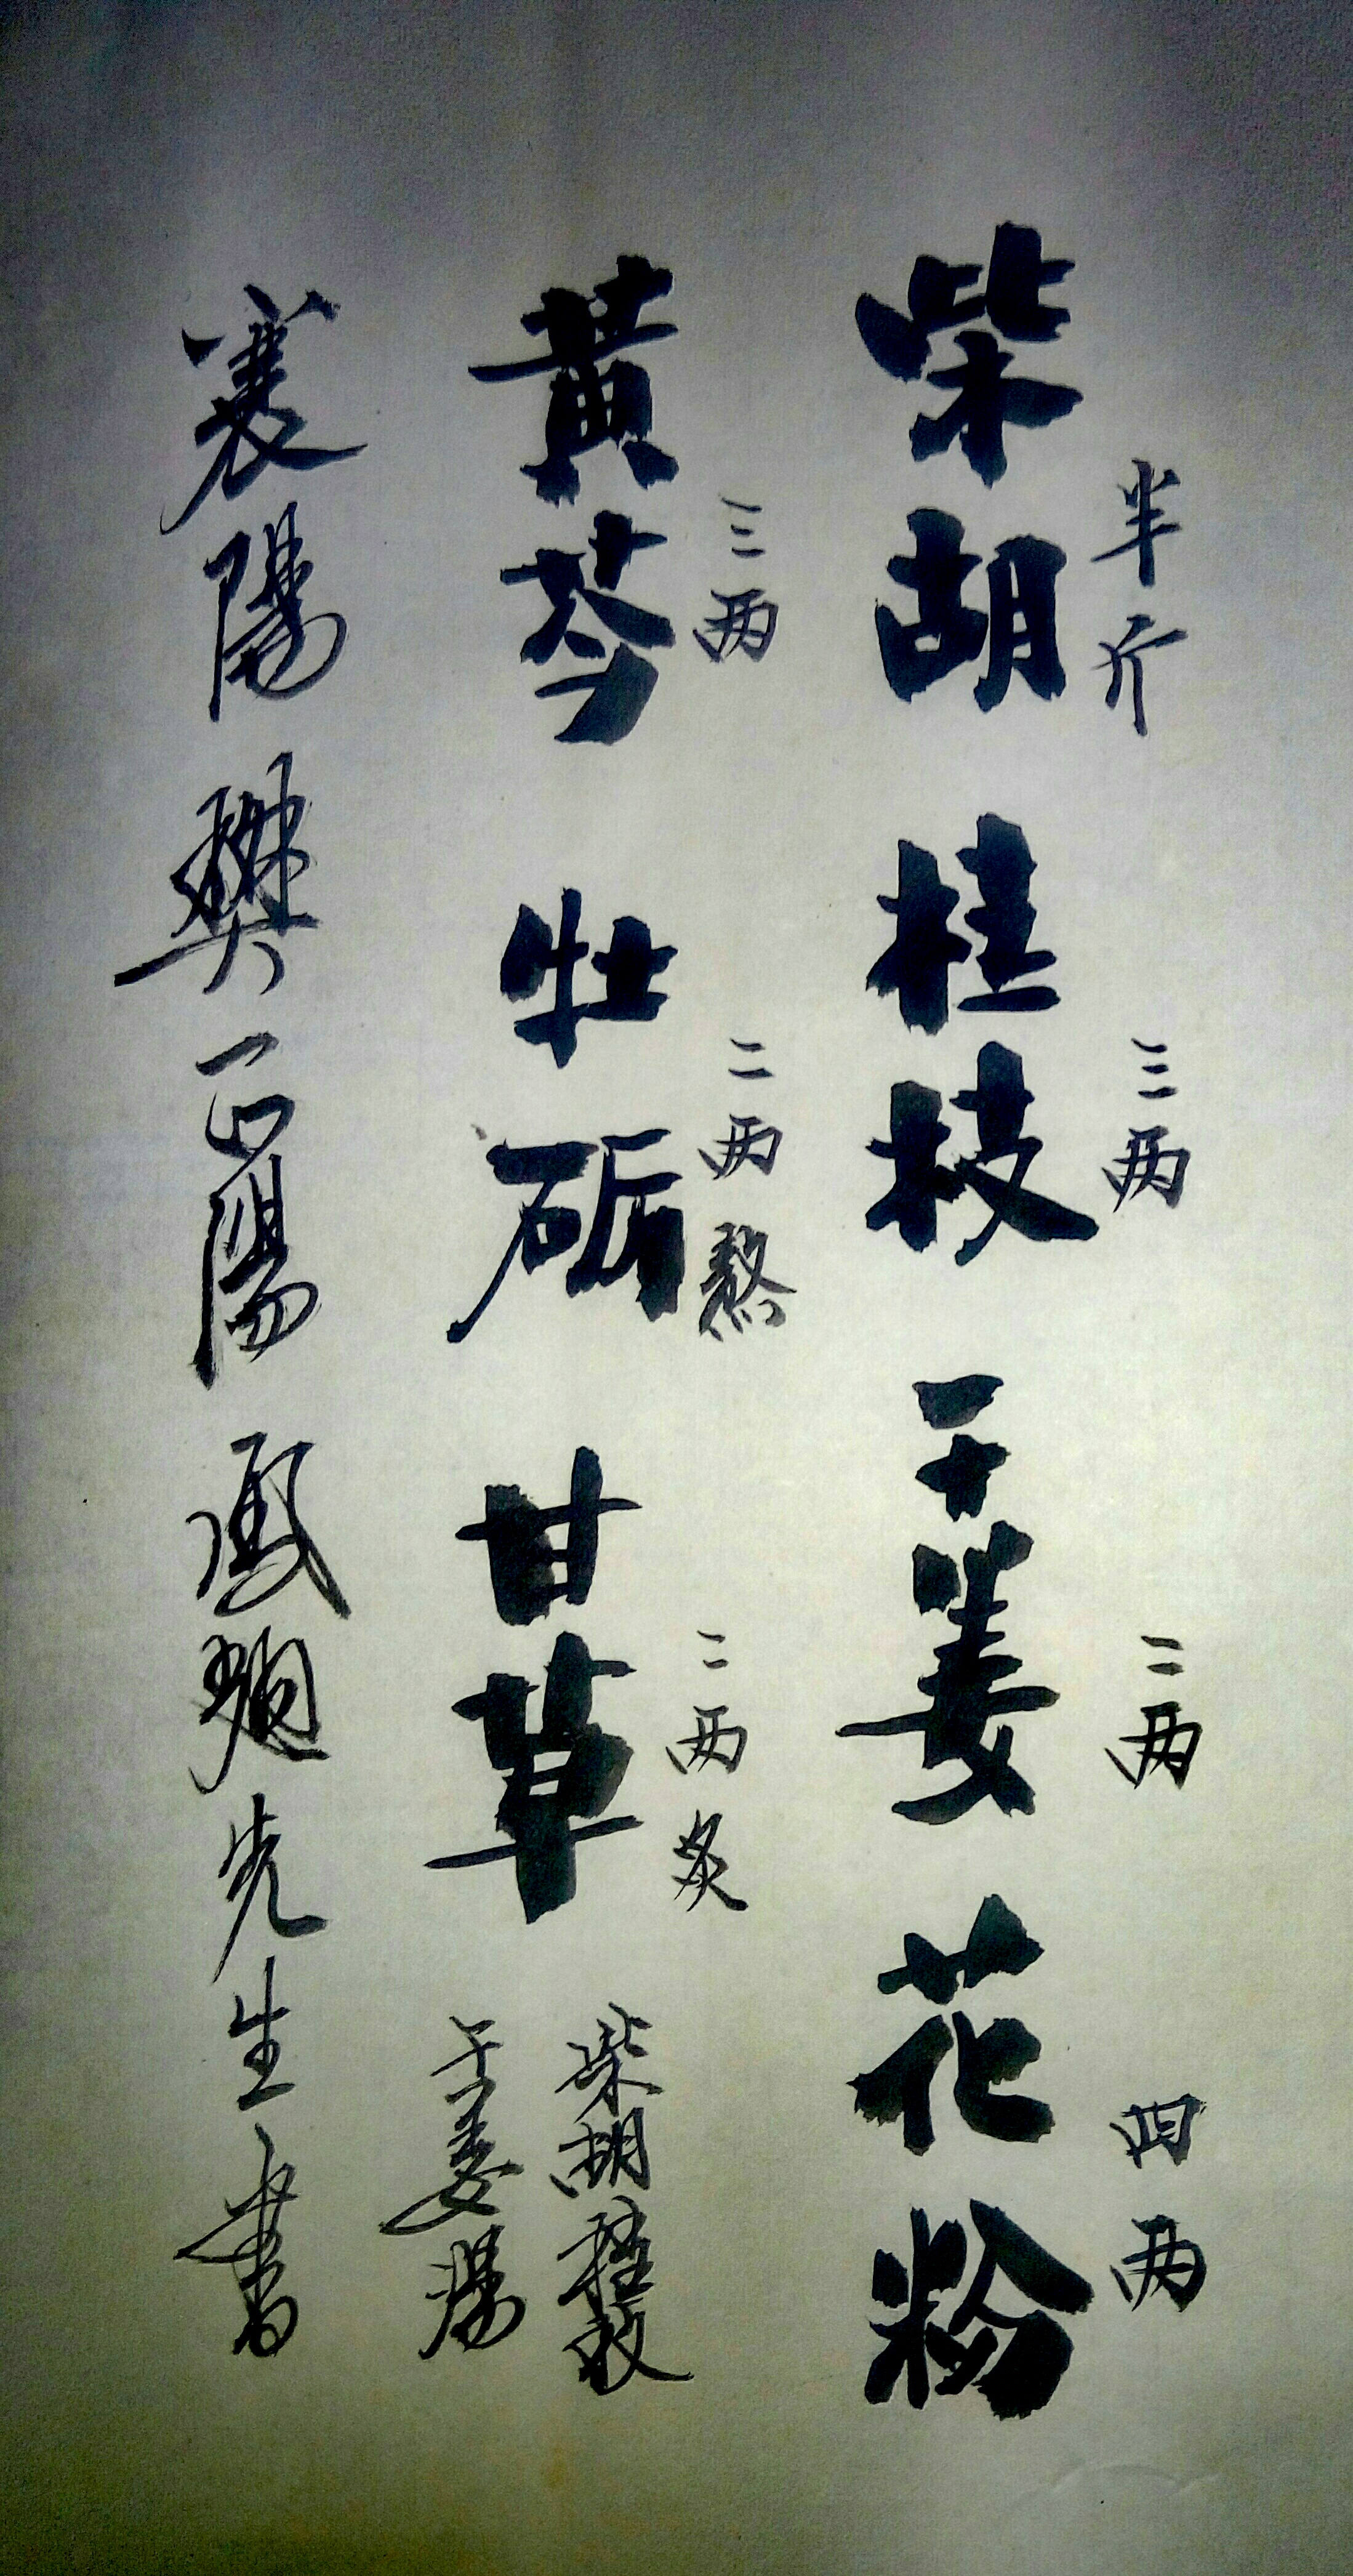 柴胡 半斤 桂枝 三两 干姜 二两 花粉 四两
黄芩 三两 牡砺 二两熬 甘草 二两炙
柴胡桂枝
干姜湯
襄陽樊正陽 先生書